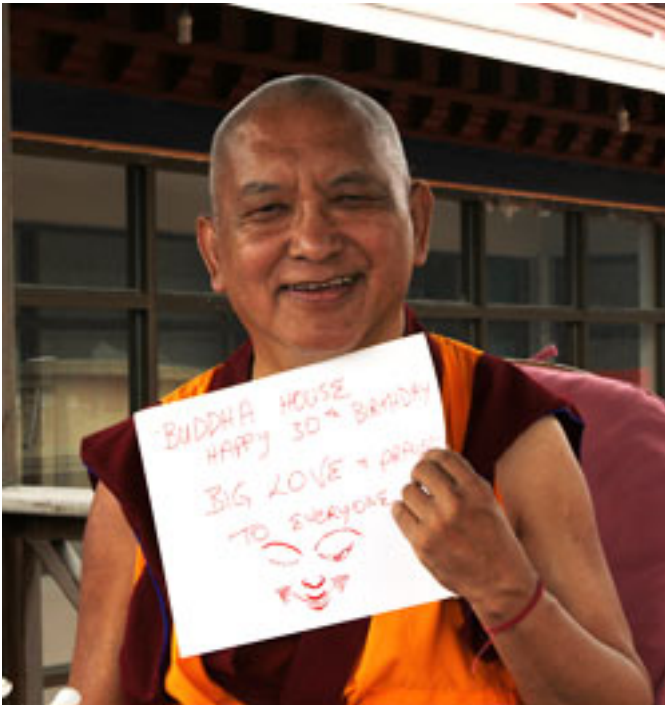 BUDDHA HOUSE
HAPPY 30th BIRTHDAY
BIG LOVE &
TO EVERYONE